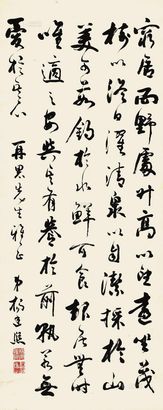 窮居而野處升高以望遠坐茂
樹以終日濯清泉以自潔採於山
美可茹釣於水鮮可食起居無時
唯適之安與其有譽於前孰若無
憂於其心 再思先生雅正 弟楊